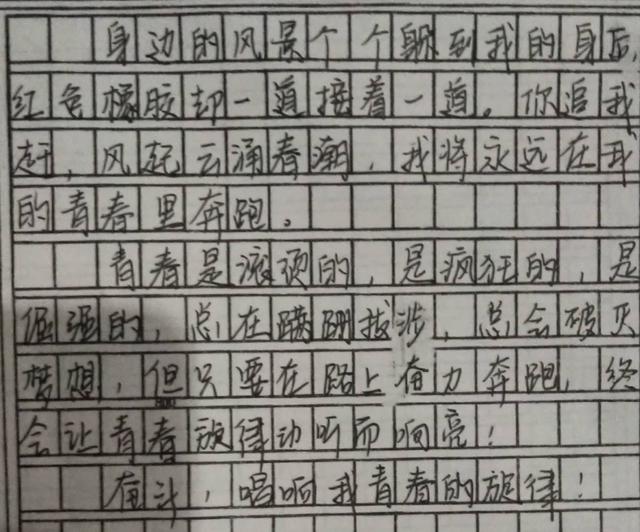 身边的风景个个躲到我的身后,
红色橡胶却一道接着一道。你追我
赶,风起云涌春潮,我将永远在我
的青春里奔跑。
青春是滚烫的,是疯狂的,是
倔强的,总在蹒跚拔涉,总会破灭
梦想,但只要在路上奋力奔跑,终
会让青春旋律动听而响亮!
奋斗,唱响我青春的旋律!